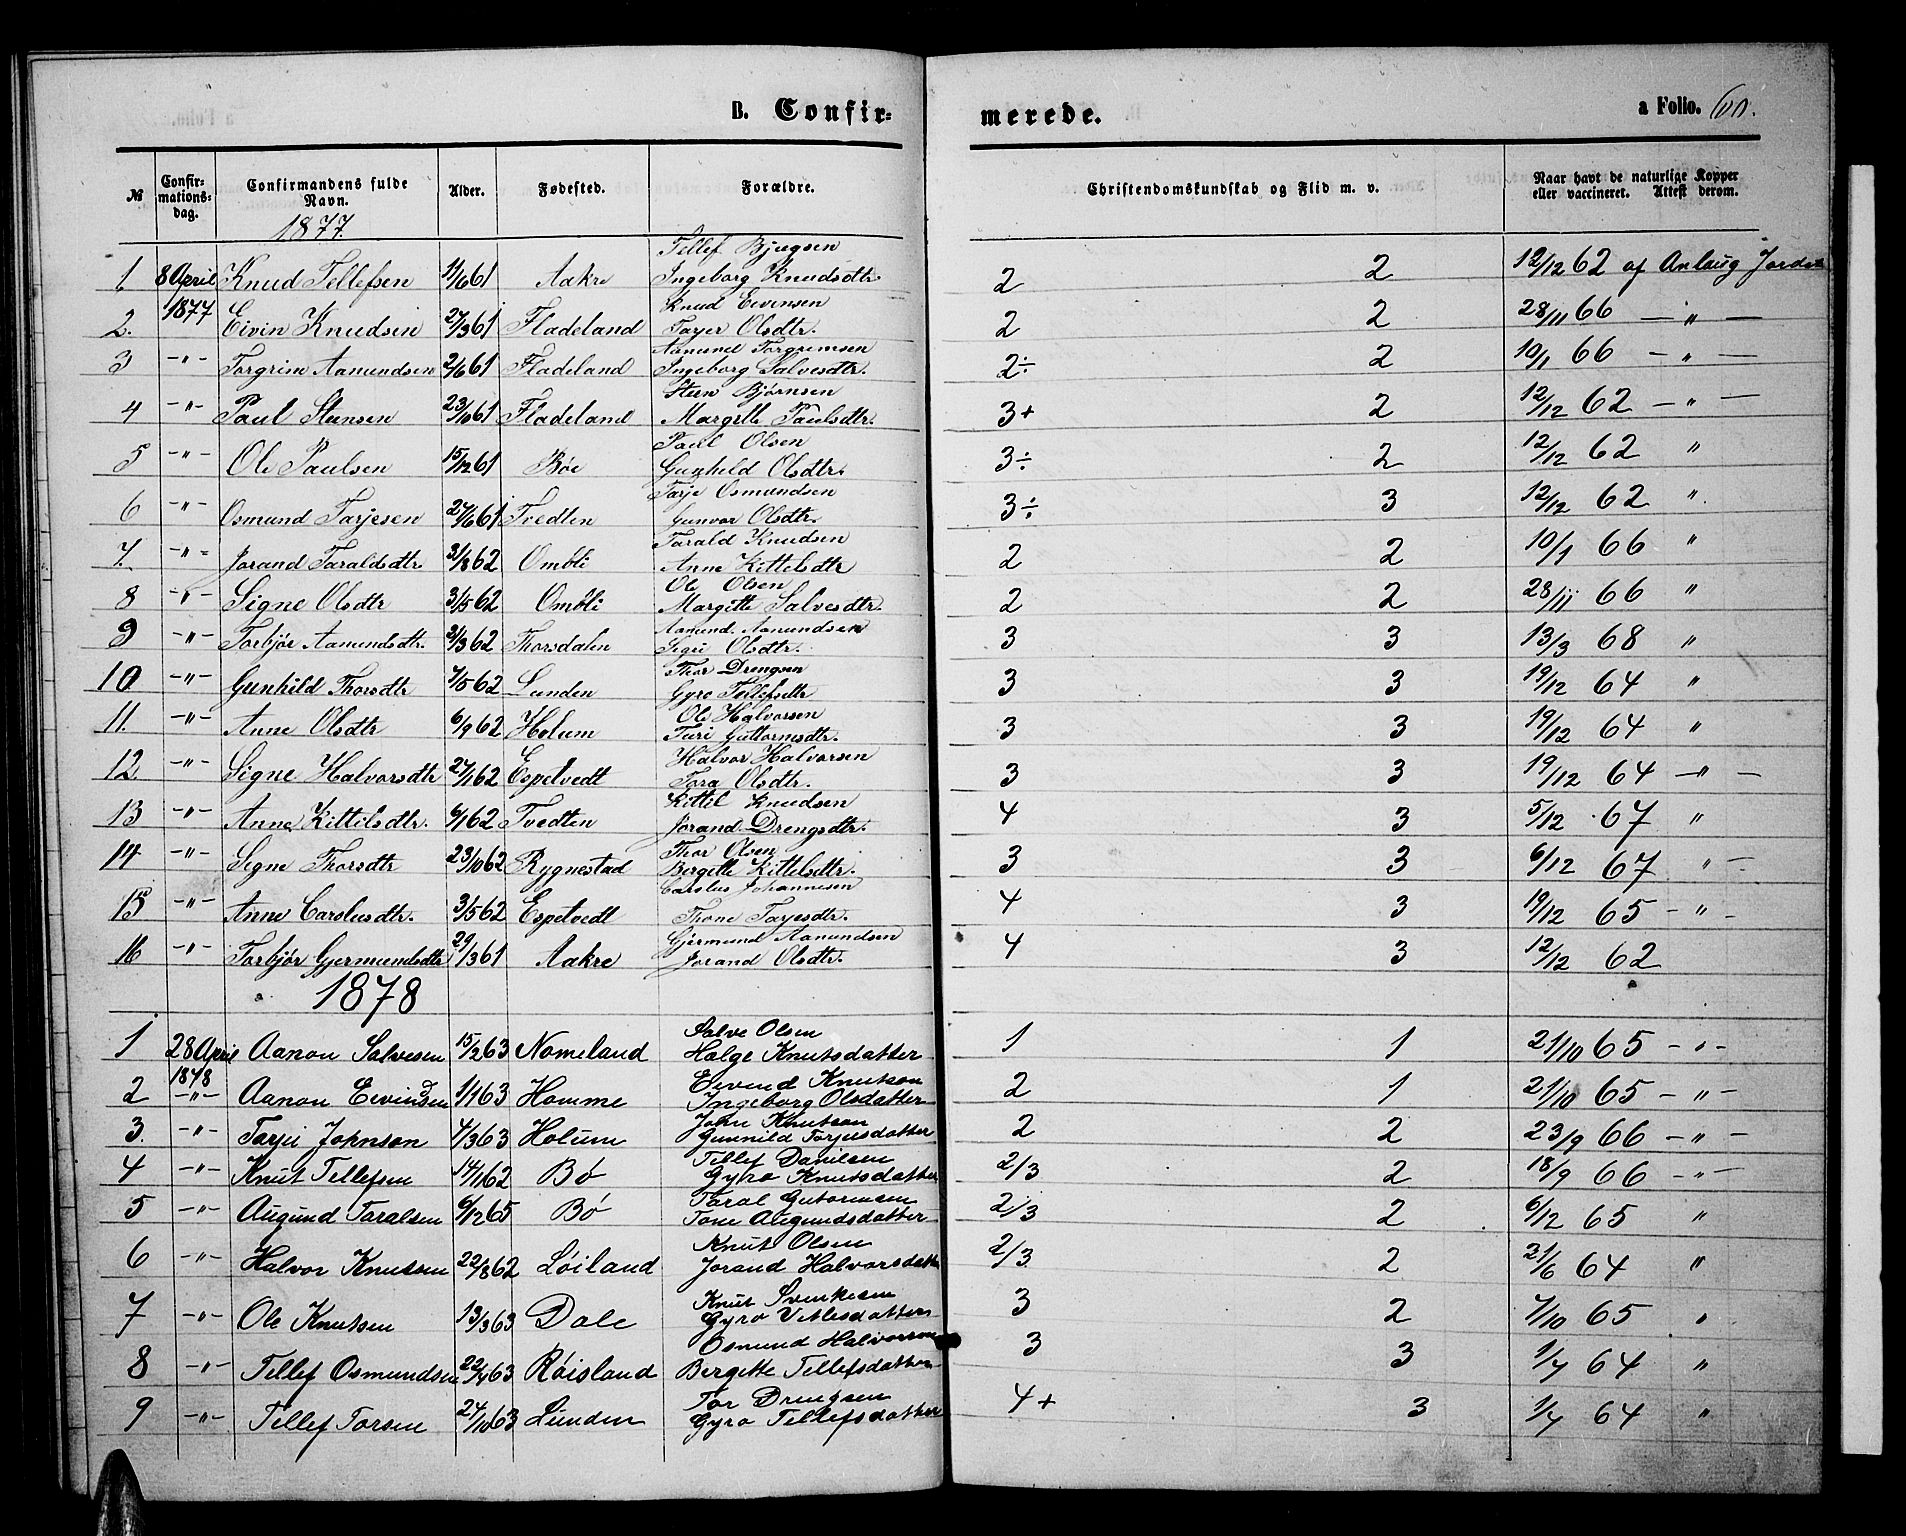 B. Confir=merede. a Folio. 60.
№ Confir-mations-dag. Confirmandens fulde Navn. Alder. Fødested. Forældre. Christendomskundskab og Flid m. v. Naar havt de naturlige Kopper eller vaccineret. Attest derom.
1877
Tellef Bjugsen
1 8 April Knud Tellefsen 11/6 61 Aakre Ingeborg Knudsdtr 2 2 12/12 62 af Anlaug Jorda
1877 Knud Eivinsen
2. Eivin Knudsen 27/3 61 Fladeland Tayer Olsdtr. 2 2 28/11 66 — " —
Aamund Torgrimsen
3 -"- Torgrim Aamundsen 2/6 61 Fladeland Ingeborg Salvesdtr. 2÷ 2 10/1 66 — " —
Steen Bjørnsen
4 -"- Paul Stensen 23/10 61 Fladeland Margitte Paulsdtr. 3+ 2 12/12 62 — " —
Paul Olsen
5 -"- Ole Paulsen 15/12 61 Bøe Gunhild Olsdtr. 3÷ 2 12/12 62 "
Tarje Osmundsen
6 -"- Osmund Tarjesen 27/6 61 Tvedten Gunvor Olsdtr. 3÷ 3 12/12 62 "
Tarald Knudsen
7. -"- Jorand Taraldsdtr 31/8 62 Ombli Anne Kittelsdtr 2 2 10/1 66 "
Ole Olsen
8 -"- Signe Olsdtr 3/5 62 Ombli Margitte Salvesdtr. 2 2 28/11 66 "
Aamund Aamundsen
9 -"- Torbjør Aamundsdtr. 2/3 62 Thorsdalen Sigri Olsdtr. 3 3 13/3 68 "
Thor Drengsen
10 -"- Gunhild Thorsdtr 7/5 62 Lunden Gyro Tellefsdtr 3 3 19/12 64 "
Ole Halvorsen
11. -"- Anne Olsdtr 6/9 62 Holum Turi Guttormsdtr. 3 3 19/12 64 "
Halvor Halvorsen
12 -"- Signe Halvorsdtr 27/1 62 Espetvedt Tora Olsdtr. 3 3 19/12 64 — " —
Kittil Knudsen
13 -"- Anne Kittilsdtr. 6/1 62 Tvedten Jorand Drengsdtr. 4 3 5/12 67 "
Thor Olsen
14 -"- Signe Thorsdtr 23/10 62 Rygnestad Bergitte Kittelsdtr. 3 3 6/12 67 " -
Carolus Johannesen
15 -"- Anne Carolusdtr. 3/5 62 Espetvedt Thone Tayesdtr. 4 3 19/12 65 - " -
Gjermund Aamundsen
16 -"- Torbjør Gjermundsdtr 29/3 61 Aakre Jorand Olsdtr. 4 3 12/12 62
1878
Salve Olsen
1 28 April Aanon Salvesen 15/2 63 Nomeland Hælge Knutsdatter 1 1 21/10 65 - " -
1878 Eivind Knutson
2 -"- Aanon Eivindsen 1/1 63 Homme Ingeborg Olsdatter 2 1 21/10 65 - " -
John Knutson
3. -"- Tarjei Johnson 4/3 63 Holum Gunnild Torjusdatter 2 2 23/9 66 - " -
Tellef Danilsen
4 -"- Knut Tellefsen 14/1 62 Bø Gyro Knutsdatter 2/3 2 18/9 66 - " -
Taral Gutormsen
5 -"- Augund Taralsen 6/12 65 Bø Tone Augundsdatter 2/3 2 6/12 65 "
Knut Olsen
6 -"- Halvor Knutson 22/8 62 Løiland Jorand Halvorsdatter 2/3 2 21/6 64 "
Knut Svenkesen
7 -"- Ole Knutsen 13/3 63 Dale Gyro Vetlesdatter 3 2 7/10 65 "
Osmund Halvorson
8 -"- Tellef Osmundsen 22/4 63 Røisland Bergitte Tellefsdatter 3 3 1/7 64 "
Tor Drengsen
9 -"- Tellef Torsen 24/10 63 Lunden Gyro Tellefsdatter 4+ 3 1/7 64 "